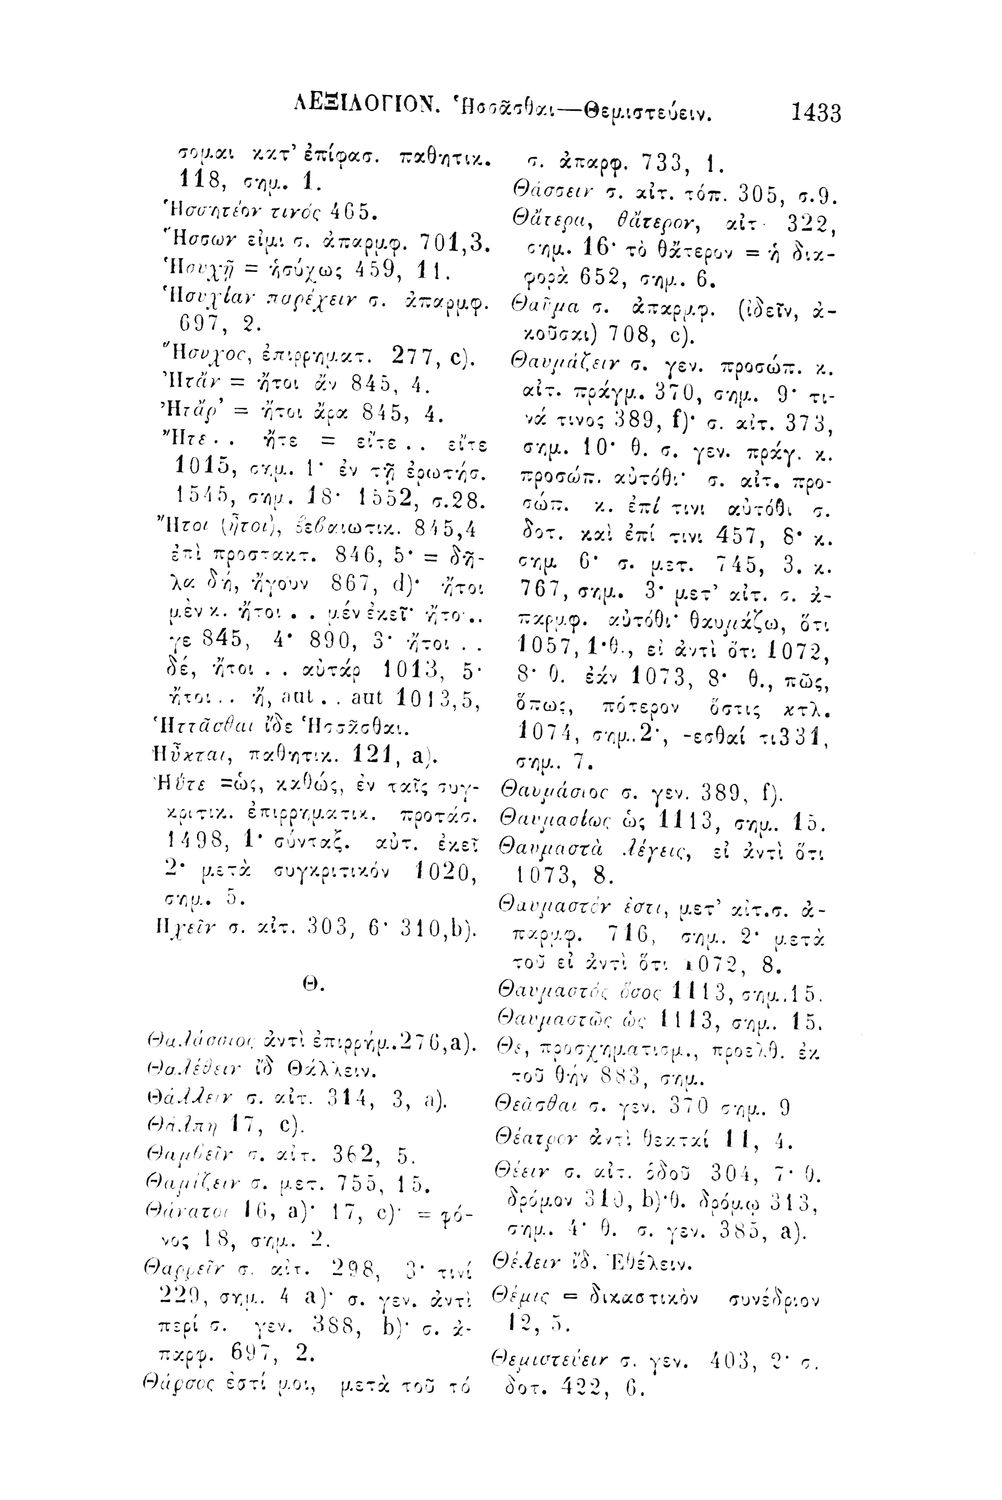 ΛΕΞΙΛΟΓΙΟΝ. Ἡσσᾶσθαι—Θεμιστεύειν. 1433
σομαι κατ’ ἐπίφασ. παθητικ.
118, σημ. 1.
Ἡσσητέον τινός 465.
Ἥσσων εἰμι σ. ἀπαρμφ. 701,3.
Ἡσυχῇ = ἡσύχως 459, 11.
Ἡσυχίαν παρέχειν σ. ἀπαρμφ.
697, 2.
Ἥσυχος, ἐπιρρηματ. 277, c).
Ἠτἄν = ἤτοι ἄν 845, 4.
Ἠτἄρ’ = ἤτοι ἄρα 845, 4.
Ἤτε . . ἤτε = εἴτε . . εἴτε
1015, σημ. 1· ἐν τῇ ἐρωτήσ.
1545, σημ. 18· 1552, σ.28.
Ἤτοι (ἦτοι), βεβαιωτικ. 845,4
ἐπὶ προστακτ. 846, 5· = δῆ-
λα δή, ἤγουν 867, d)· ἤτοι
μὲν κ. ἤτοι . . μέν ἐκεῖ· ἤτο..
γε 845, 4· 890, 3· ἤτοι . .
δέ, ἤτοι . . αὐτάρ 1013, 5·
ἤτοι . . ἤ, aut . . aut 1013,5,
Ἡττᾶσθαι ἴδε Ἡσσᾶσθαι.
Ηὖκται, παθητικ. 121, a).
Ἠΰτε =ὡς, καθώς, ἐν ταῖς συγ-
κριτικ. ἐπιρρηματικ. προτάσ.
1498, 1· σύνταξ. αὐτ. ἐκεῖ
2· μετὰ συγκριτικόν 1020,
σημ. 5.
Ηχεῖν σ. αἰτ. 303, 6· 310,b).
Θ.
Θαλάσσιος ἀντὶ ἐπιρρήμ.276,a).
Θαλέθειν ἴδ Θάλλειν.
Θάλλειν σ. αἰτ. 314, 3, a).
Θάλπη 17, c).
Θαμβεῖν σ. αἰτ. 362, 5.
Θαμίζειν σ. μετ. 755, 15.
Θάνατοι 16, a)· 17, c)· = φό-
νος 18, σημ. 2.
Θαρρεῖν σ. αἰτ. 298, 3· τινί
229, σημ. 4 a)· σ. γεν. ἀντὶ
περί σ. γεν. 388, b)· σ. ἀ-
παρφ. 697, 2.
Θάρσος ἐστί μοι, μετὰ τοῦ τό
σ. ἀπαρφ. 733, 1.
Θάσσειν σ. αἰτ. τόπ. 305, σ.9.
Θἄτερα, θἄτερον, αἰτ· 322,
σημ. 16· τὸ θἄτερον = ἡ δια-
φορὰ 652, σημ. 6.
Θαῦμα σ. ἀπαρμφ. (ἰδεῖν, ἀ-
κοῦσαι) 708, c).
Θαυμάζειν σ. γεν. προσώπ. κ.
αἰτ. πράγμ. 370, σημ. 9· τι-
νά τινος 389, f)· σ. αἰτ. 373,
σημ. 10· θ. σ. γεν. πράγ. κ.
προσώπ. αὐτόθι· σ. αἰτ. προ-
σώπ. κ. ἐπί τινι αὐτόθι σ.
δοτ. καὶ ἐπί τινι 457, 8· κ.
σημ. 6· σ. μετ. 745, 3. κ.
767, σημ. 3· μετ’ αἰτ. σ. ἀ-
παρμφ. αὐτόθι· θαυμάζω, ὅτι
1057, 1·θ., εἰ ἀντὶ ὅτι 1072,
8· θ. ἐάν 1073, 8· θ., πῶς,
ὅπως, πότερον ὅστις κτλ.
1074, σημ..2·, -εσθαί τι331,
σημ. 7.
Θαυμάσιος σ. γεν. 389, f).
Θαυμασίως ὡς 1113, σημ. 15.
Θαυμαστὰ λέγεις, εἰ ἀντὶ ὅτι
1073, 8.
Θαυμαστόν ἐστι, μετ’ αἰτ.σ. ἀ-
παρμφ. 716, σημ. 2· μετὰ
τοῦ εἰ ἀντὶ ὅτι 1072, 8.
Θαυμαστὸς ὅσος 1113, σημ.15.
Θαυμαστῶς ὡς 1113, σημ. 15.
Θε, προσχηματισμ., προελθ. ἐκ
τοῦ θήν 883, σημ.
Θεᾶσθαι σ. γεν. 370 σημ. 9
Θέατρον ἀντὶ θεαταί 11, 4.
Θέειν σ. αἰτ. ὁδοῦ 304, 7· θ.
δρόμον 310, b)·θ. δρόμῳ 313,
σημ. 4· θ. σ. γεν. 385, a).
Θέλειν ἴδ. Ἐθέλειν.
Θέμις = δικαστικὸν συνέδριον
12, 5.
Θεμιστεύειν σ. γεν. 403, 2· σ.
δοτ. 422, 6.